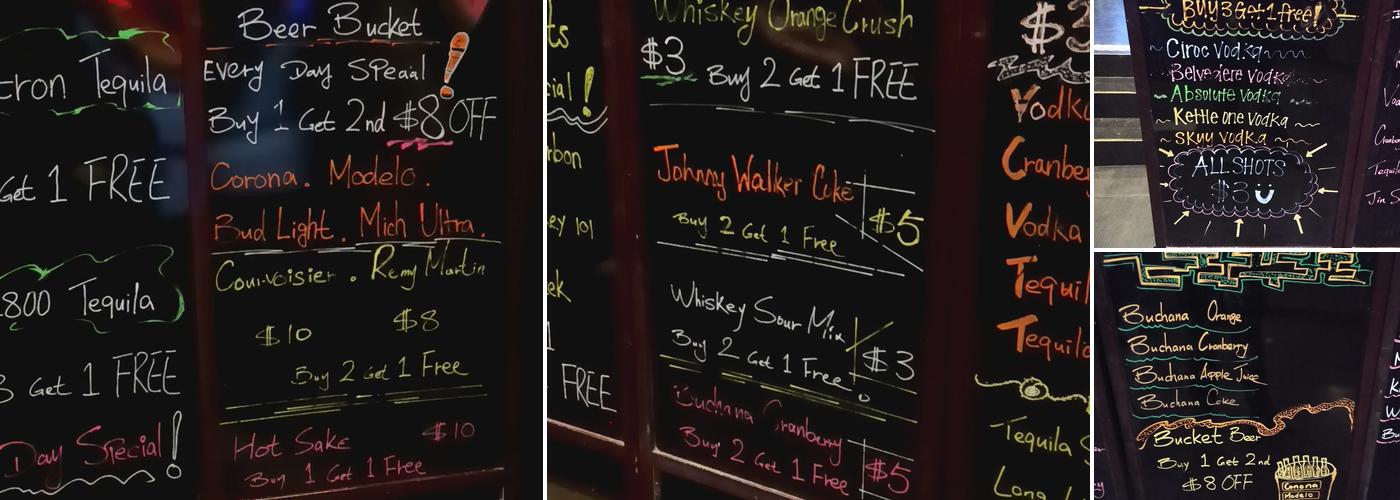 tron Tequila
Get 1 FREE
1800 Tequila
3 Get 1 FREE
Day Special!
Beer Bucket
Every Day Special !
Buy 1 Get 2nd $8 OFF
Corona . Modelo .
Bud Light . Mich Ultra .
Courvoisier . Remy Martin
$10 $8
Buy 2 Get 1 Free
Hot Sake $10
Buy 1 Get 1 Free
ts
cial !
rbon
ey 101
ek
FREE
Whiskey Orange Crush
$3 Buy 2 Get 1 FREE
Johnny Walker Coke
Buy 2 Get 1 Free $5
Whiskey Sour Mix
Buy 2 Get 1 Free $3
Buchana Cranberry
Buy 2 Get 1 Free $5
$3
Vodka
Cranber
Vodka
Tequil
Tequila
Tequila S
Long
BUY 3 Get 1 free!
Ciroc Vodka
Belvediere Vodka
Absolute Vodka
Kettle one Vodka
Skyy Vodka
ALL SHOTS
$3
Buchana Orange
Buchana Cranberry
Buchana Apple Juice
Buchana Coke
Bucket Beer
Buy 1 Get 2nd
$8 OFF
Corona
Modelo